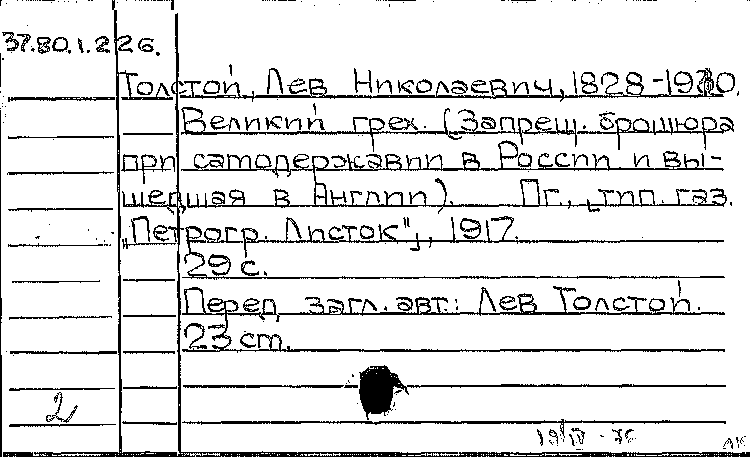 37.80.1.226.
Толстой, Лев Николаевич, 1828-1910.
Великий грех. (Запрещ. брошюра
при самодержавии в России и вы-
шедшая в Англии). Пг., [тип. газ.
„Петрогр. Листок"], 1917.
29 с.
Перед загл. авт.: Лев Толстой.
23 ст.
2
19/IV - 76